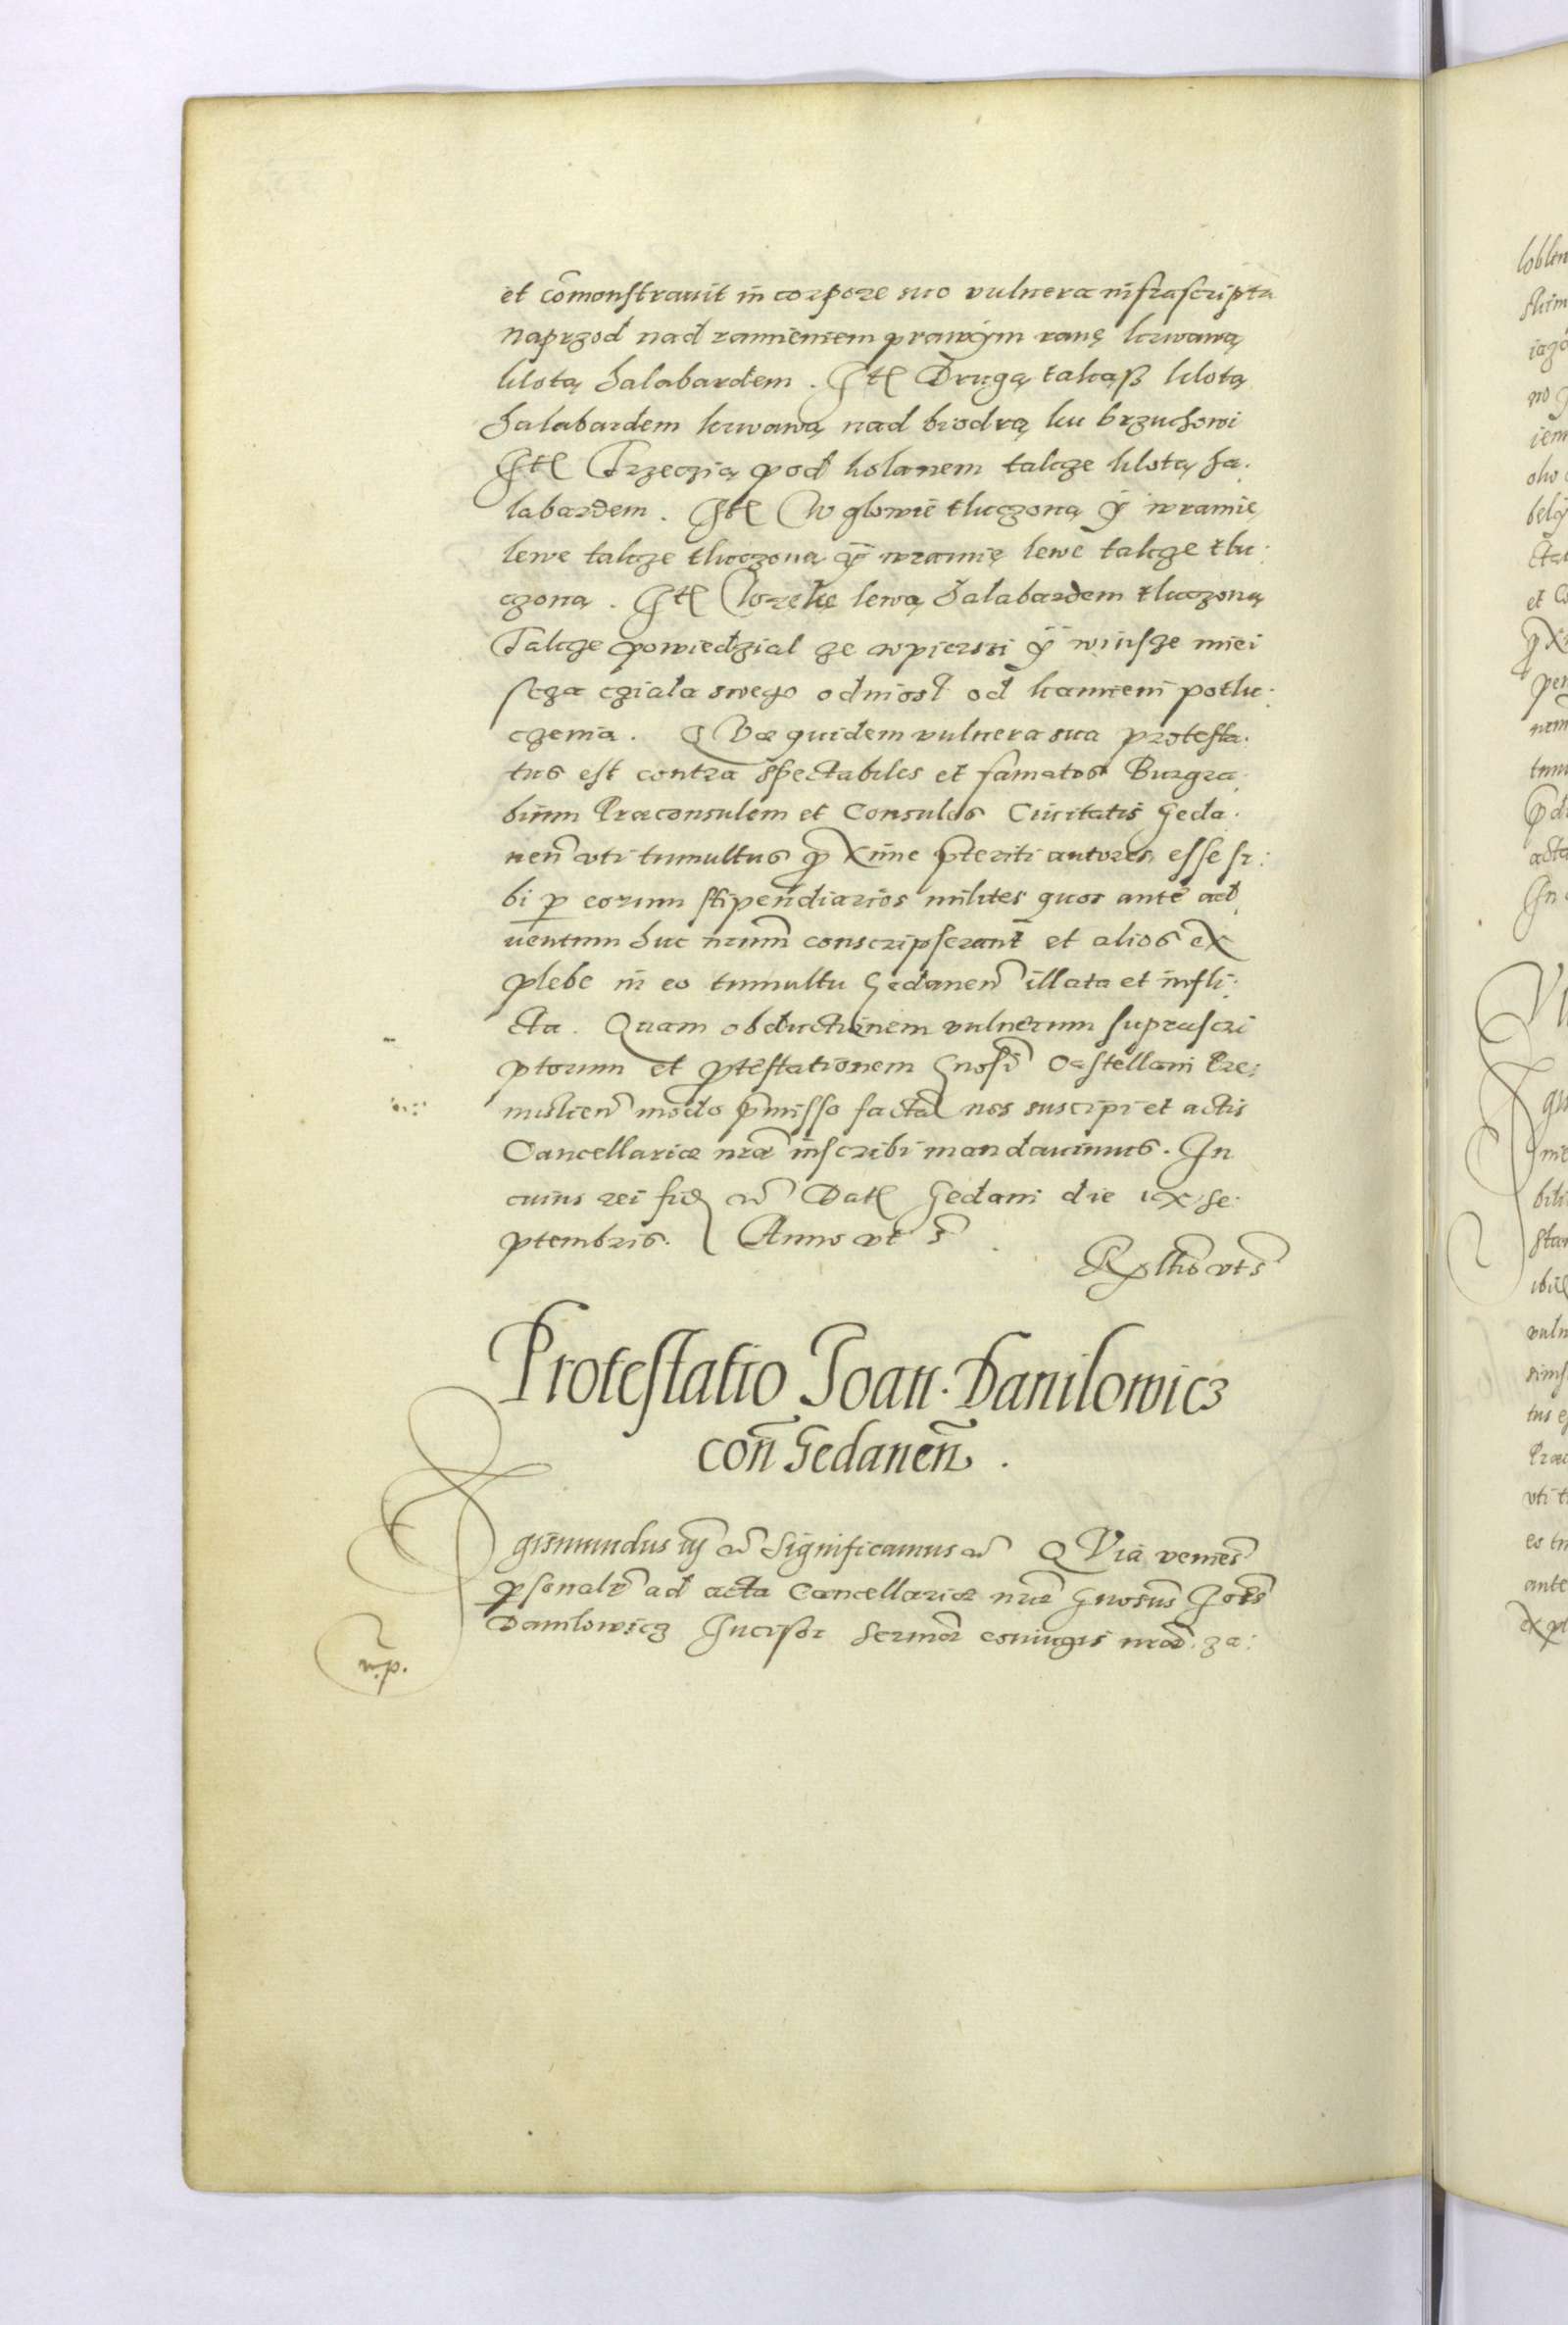 et cõmonstrauit in corpore suo vulnera infrascripta
Naprzod nad ramieniem prawym ranę krwawą
klotą halabardem. Itē Drugą takąß klotą
halabardem krwawą nad biodrą ku brzuchowi
Itē Trzeczią pod kolanem takze klotą ha:
labardem. Itē W glowie tluczoną ÿ w ramię
lewe takze tluczoną ÿ w ramię lewe takze tlu:
czoną. Itē W rękę lewą halabardem tluczoną
Takze powiedzial ze w piersi ÿ w insze miei
scza cziala swego odniosl od kamieni potlu:
czenia. QVæ quidem vulnera sua protesta:
tus est contra spectabiles et famatos Burgra:
bium Præconsulem et Consules Ciuitatis Geda:
nen̄ vti tumultus proxime p̄teriti autores, esse si:
bi p eorum stipendiarios milites quos ante ad
uentum huc nrum̄ conscripserant et alios ex
plebe in eo tumultu Gedanen̄ illata et infli:
cta. Quam obductionem vulnerum suprascri
ptorum et protestationem Gnosi Castellani Pre:
mislien̄ modo p̄misso factā nos suscipi et actis
Cancellariæ nræ inscribi mandauimus. In
cuius rei fidē Datē Gedani die ix se:
ptembris. Anno vt s̄
Rx ltio vt s̄
Protestatio Ioan. Danilowicz
con̄ Gedanen̄.
Sigismundus iij Significamus QVia veniēs
psonalr̄ ad acta Cancellariæ nræ Gnosus Ioēs
Danilowicz Incisor Sermæ coniugis nræ. za:
n.p.